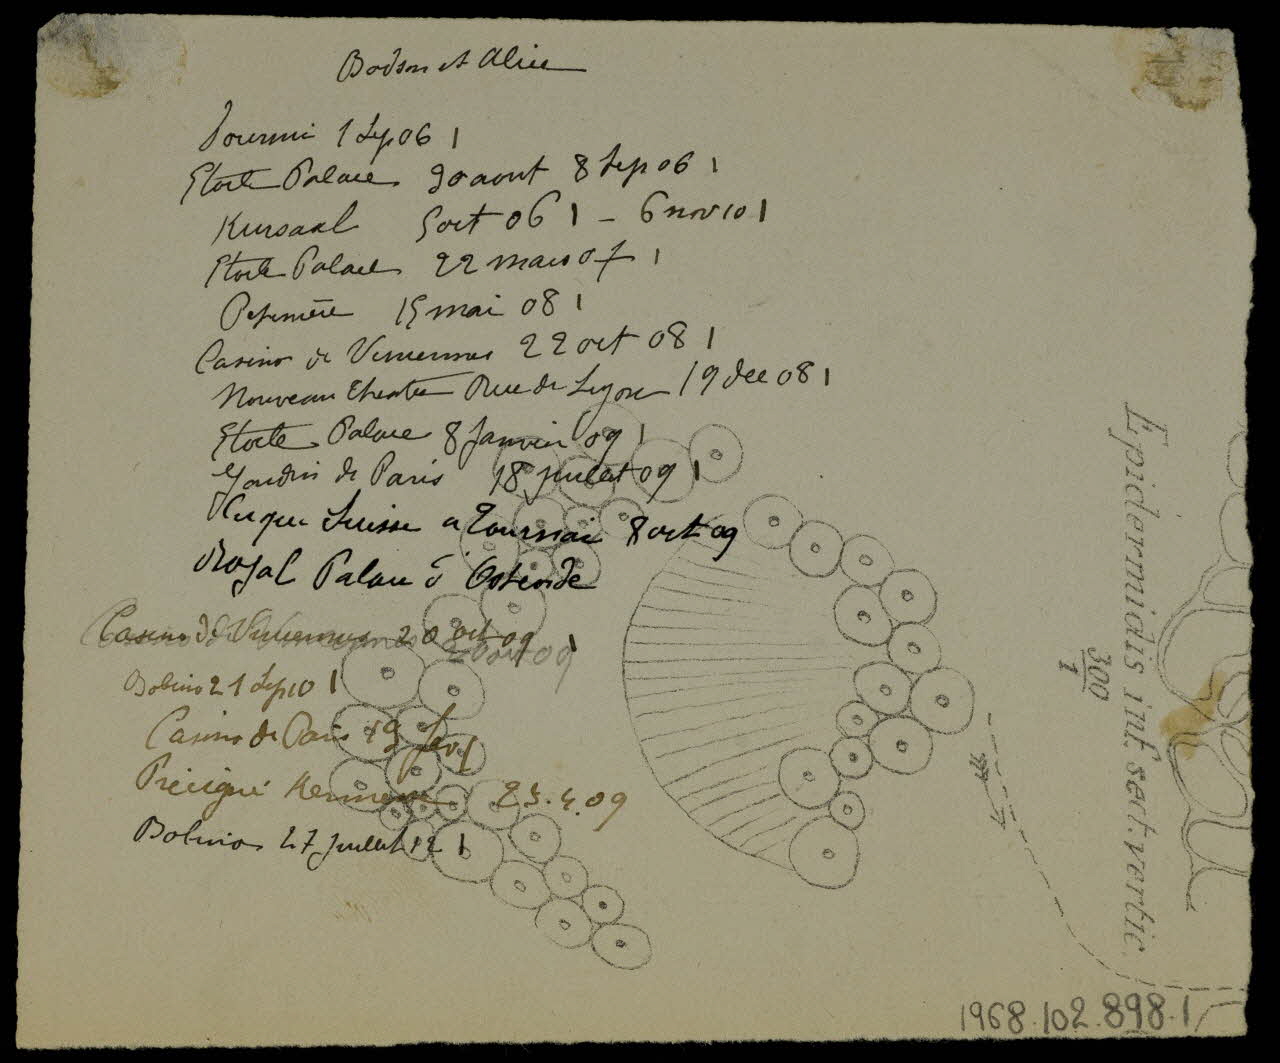 Bodson et Alice
Fourmi 1 Sep 06 1
Etoile Palace 30 aout 8 Sep 06 1
Kursaal 5 oct 06 1 - 6 nov 10 1
Etoile Palace 22 mars 07 1
Pepinière 15 mai 08 1
Casino de Vincennes 22 oct 08 1
Nouveau theatre Rue de Lyon 19 dec 08 1
Etoile Palace 8 Janvier 09 1
Jardin de Paris 18 juillet 09 1
Cirque Suisse a Tournai 8 oct 09
Royal Palace à Ostende
Casino de Vincennes 20 oct 09 1
20 oct 09
Bobino 21 Sep 10 1
Casino de Paris 19 fev
Précigné Kermesse 25.4.09
Bobino 27 Juillet 12 1
Epidermidis inf. sect. vertic.
300
1
1968.102.898.1